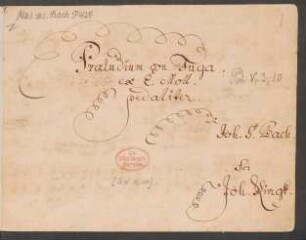 Mus. ms. Bach P 428
Præludium con Fuga.
ex E Moll.
pedaliter.
V, 3, 10
Joh. S. Bach
Joh. Ringk.